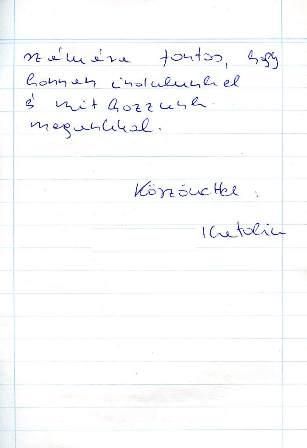 számára fontos, hogy
honnan indulunk el
és mit hozzunk
magunkkal.
Köszönettel:
Katalin